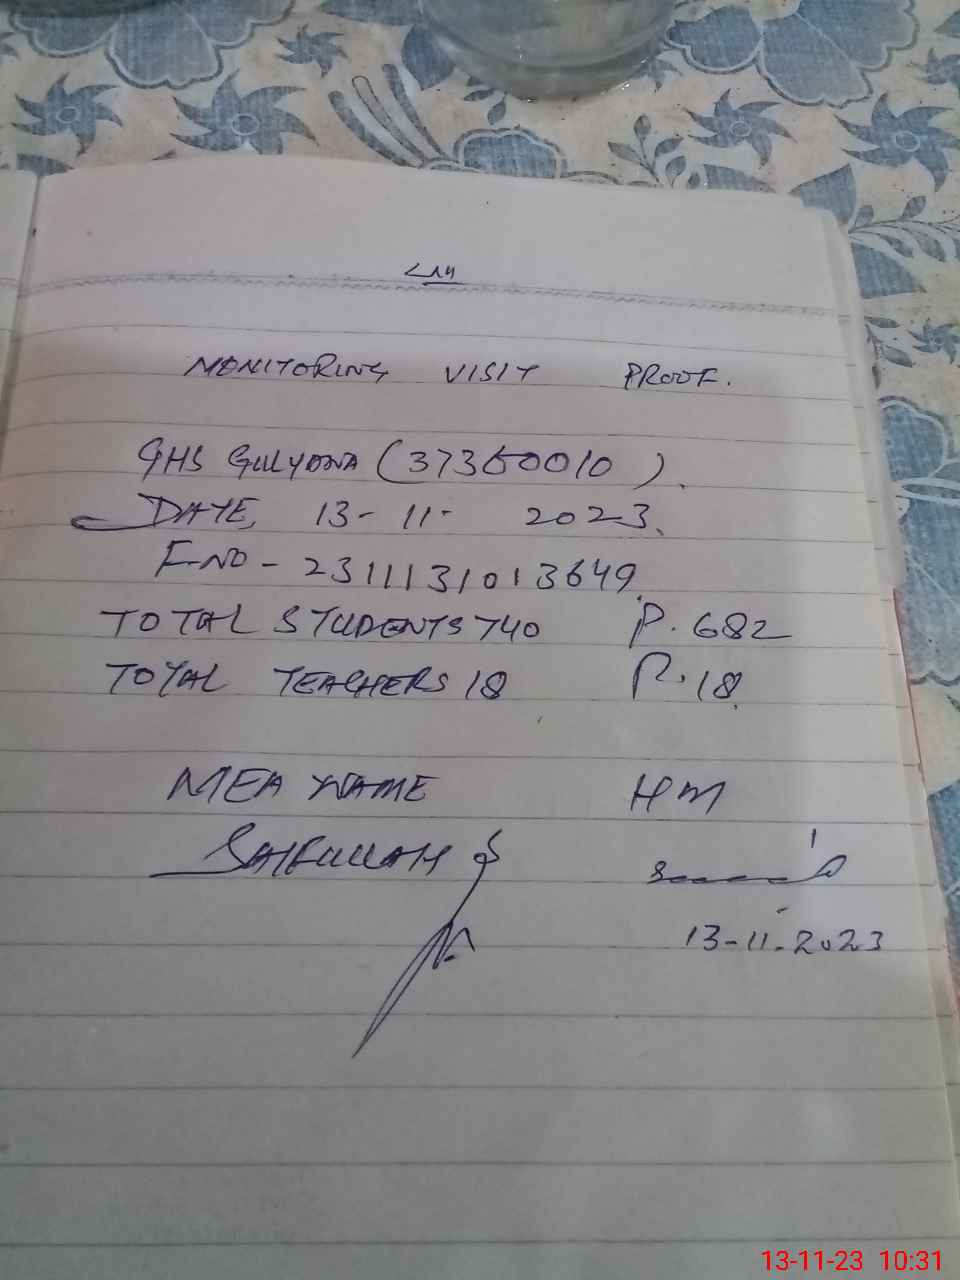 MONITORING VISIT PROOF.
GHS GULYANA (37360010).
DATE, 13-11-2023.
F-NO-2311131013649
TOTAL STUDENTS 740 P. 682
TOTAL TEACHERS 18 P. 18
MEA NAME HM
SAIFULLAH
13-11-2023
13-11-23 10:31